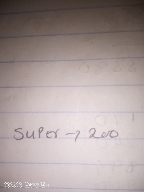 super → 200